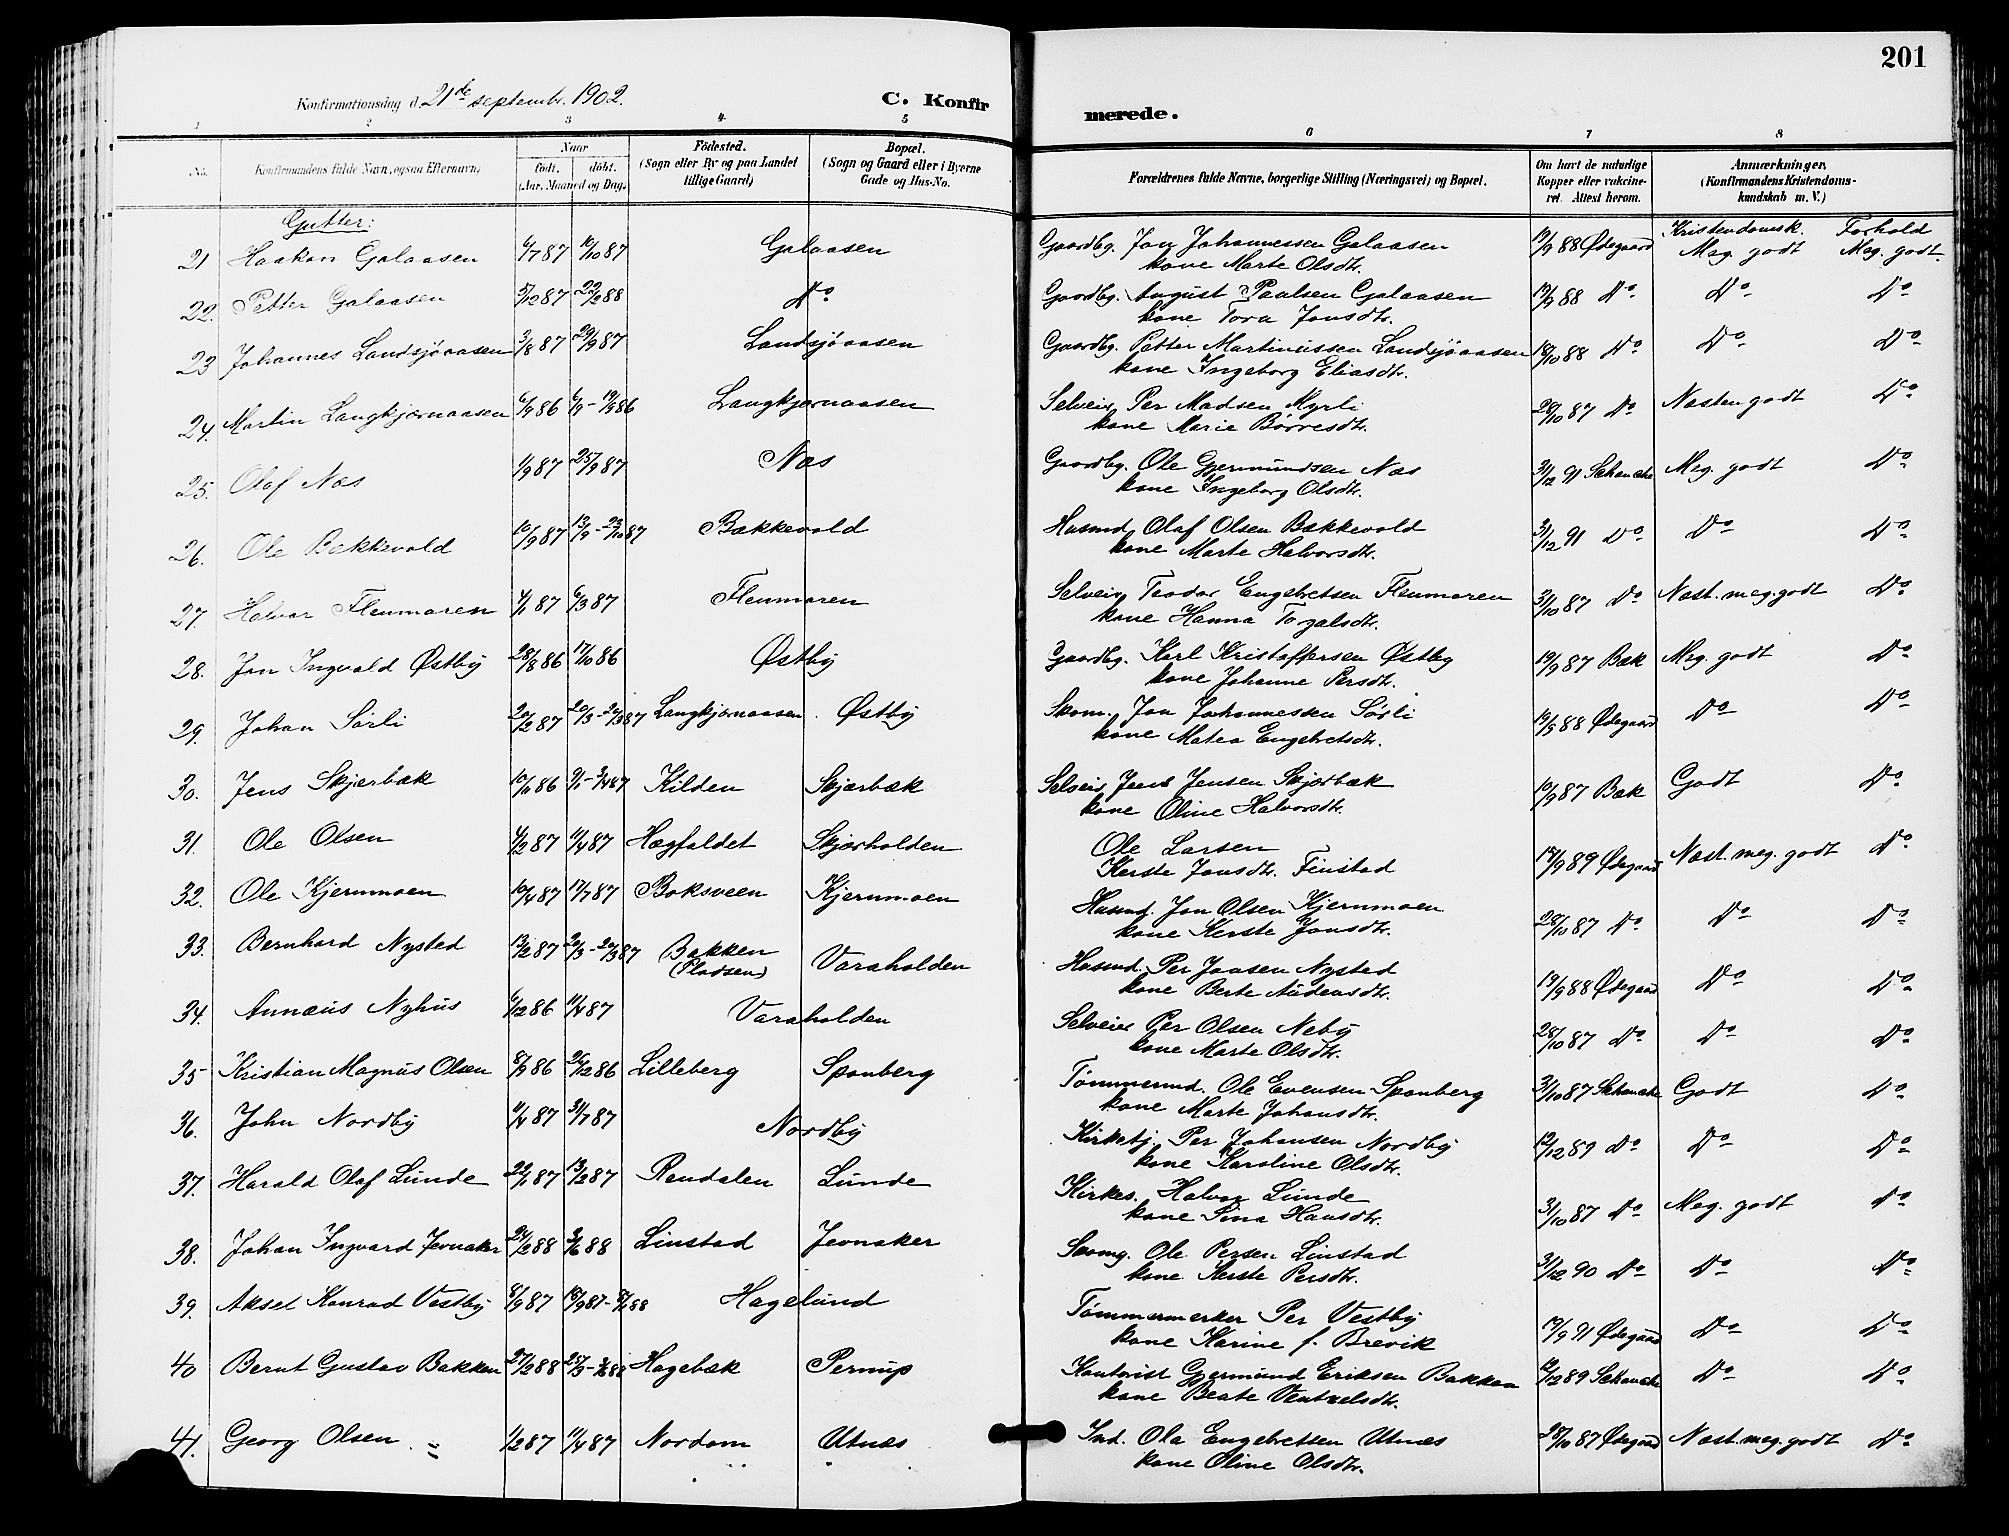 201
Konfirmationsdag d. 21de septembr. 1902.
C. Konfirmerede.
1 2 3 4 5 6 7 8
No. Konfirmandens fulde Navn, ogsaa Efternavn) Naar født. døbt. (Aar, Maaned og Dag) Födested. (Sogn eller By og paa Landet tillige Gaard) Bopæl. (Sogn og Gaard eller i Byerne Gade og Hus-No. Forældrenes fulde Navne, borgerlige Stilling (Næringsvei) og Bopæl. Om havt de naturlige Kopper eller vakcineret. Attest herom. Anmærkninger. (Konfirmandens Kristendomskundskab m. V.)
Gutter: Kristendomsk. Forhold
21 Haakon Galaasen 6/7 87 10/10 87 Galaasen Gaardbg. Jon Johannessen Galaasen 19/9 88 Ødegaard Meg. godt Meg. godt.
kone Marte Olsdtr.
22. Petter Galaasen 5/12 87 22/2 88 Do Gaardbg. August Paulsen Galaasen 19/9 88 Do Do Do
kone Tora Jonsdtr.
23 Johannes Landsjøaasen 3/8 87 29/9 87 Landsjøaasen Gaardbg. Petter Martinussen Landsjøaasen 18/10 88 Do Do Do
kone Ingeborg Eliasdtr.
24. Martin Langkjærnaasen 6/9 86 6/9 - 19/9 86 Langkjærnaasen Selveier Per Madsen Myrli 28/10 87 Do Næsten godt Do
kone Marie Børresdtr.
25. Olaf Næs 1/9 87 25/9 87 Næs Gaardbg. Ole Gjermundsen Næs 31/12 91 Schancke Meg. godt Do
kone Ingeborg Olsdtr.
26. Ole Bækkevold 10/9 87 13/9 - 23/10 87 Bækkevold Husmd. Olaf Olsen Bækkevold 31/12 91 Do Do Do
kone Marte Halvorsdtr.
27. Halvor Flenmoren 4/1 87 6/3 87 Flenmoren Selveier Teodor Engebretsen Flenmoren 31/10 87 Do Næst. meg. godt Do
kone Hanna Torgalsdtr.
28. Jon Ingvald Østby 28/8 86 17/10 86 Østby Gaardbg. Karl Kristoffersen Østby 19/9 87 Bæk Meg. godt Do
kone Johanne Persdtr.
29. Johan Sörli 20/2 87 20/3 - 24/3 87 Langkjærnaasen Østby Skom. Jon Johannessen Sörli 19/9 88 Ødegaard Do Do
kone Matea Engebretsdtr.
30. Jens Skjærbæk 10/11 86 9/1 - 3/4 87 Kilden Skjærbæk Selveier Jens Jensen Skjærbæk 19/9 87 Bæk Godt Do
kone Oline Halvorsdtr.
31. Ole Olsen 4/2 87 11/4 87 Hægfaldet Skjærholden Ole Larsen 17/9 89 Ødegaard Næst. meg. godt Do
Kerste Jonsdtr. Finstad
32. Ole Kjernmoen 10/4 87 17/7 87 Boksveen Kjernmoen Husmd. Jon Olsen Kjernmoen 28/10 87 Do Do Do
kone Kerste Jonsdtr.
33. Bernhard Nysted 13/2 87 20/3 - 20/3 87 Bakken (Pladsen) Varaholden Husmd. Per Joasen Nysted 19/9 88 Ødegaard Do Do
kone Berte Audensdtr.
34. Annæus Nyhus 6/12 86 11/4 87 Varaholden Selveier Per Olsen Neby 28/10 87 Do Do Do
kone Marte Olsdtr.
35 Kristian Magnus Olsen 8/9 86 26/12 86 Lilleberg Spanberg Tømmermd. Ole Evensen Spanberg 31/10 87 Schancke Godt Do
kone Marte Johansdtr.
36. John Nordby 11/4 87 31/7 87 Nordby Kirketj. Per Johansen Nordby 12/12 89 Do Do Do
kone Karoline Olsdtr.
37. Harald Olaf Lunde 22/1 87 13/2 87 Rendalen Lunde Kirkes. Halvor Lunde 31/10 87 Do Meg. godt Do
kone Sina Hansdtr.
38. Johan Ingvard Jevnaker 29/2 88 3/6 88 Linstad Jevnaker Ole Persen Linstad 31/12 90 Do Do Do
kone Kerste Persdtr.
39. Aksel Konrad Vestby 8/9 87 18/9 87 - 8/1 88 Hagelund Tømmermerker Per Vestby 19/9 91 Ødegaard Do Do
kone Karine f. Brevik
40 Bernt Gustav Bakken 27/2 88 25/3 - 3/6 88 Hagebæk Pernup Gjermund Eriksen Bakken 12/12 89 Schancke Do Do
kone Beate Ventzelsdtr.
41. Georg Olsen 1/2 87 11/4 87 Nordom Utnæs Ind. Ola Engebretsen Utnæs 28/10 87 Ødegaard Næst. meg. godt Do
kone Oline Olsdtr.